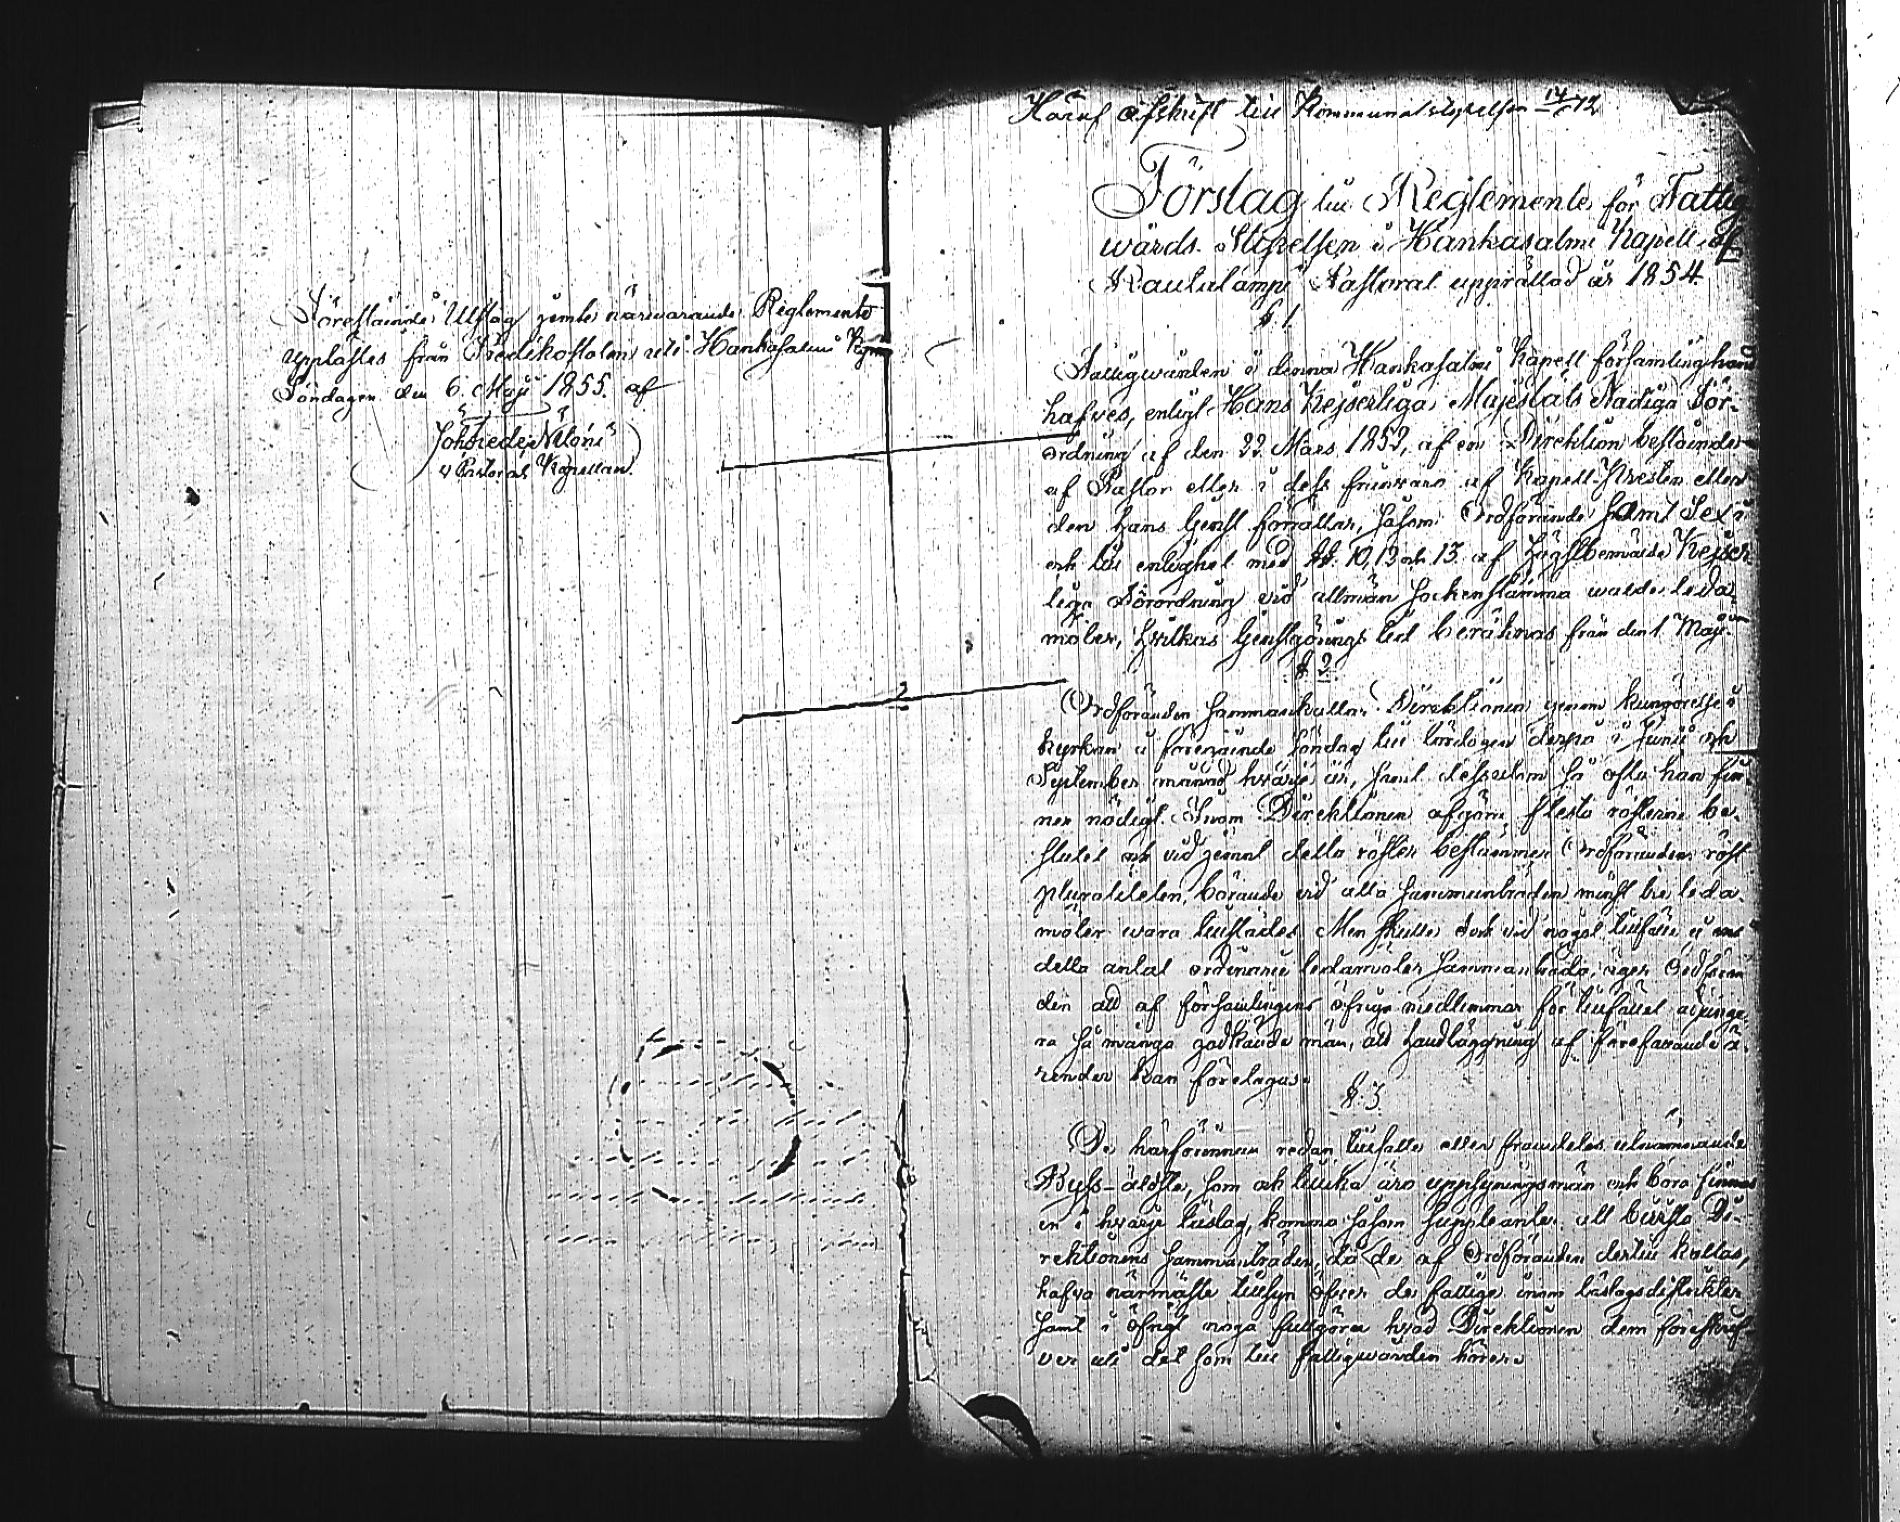 Föreståinde Utslag jemte närwarande Reglemente
upplästes från Predikostolen uti Hankasalmi
Söndagen den 6. Maji 1855. af
Pastorats Kapellan.
Häraf afskrift till Kommunalstyrelsen 14/ 72
Förslag till Reglemente för Fattig-
wårds Styrelsen i Hankasalmi Kapell af
Rautalampi Pastorat upprättad år 1854.
§ 1.
Fattigwården i denna Hankasalmi Kapell församling hand
hafves, enligt Hans Kejserliga Majestäts Nådiga För-
ordning af den 22 Mars 1852, af en Direktion bestående
af Pastor eller i dess frånvaro af Kapell-Presten eller
den hans tjenst förrättar, såsom Ordförande samt Sex i
enlighet med §§. 10, 12 och 13 af högstbemälde Kejser
liga Förordning vid allmän Sockenstämma walde leda-
möter, hvilkas tjenstgörings tid beräknas från den 1 Maji.
§ 2.
Ordföranden sammankallar Direktionen genom kungörelse i
kyrkan å föregående Söndag till lördagen derpå i Junii och
September månad hvarje år, samt dessutom så ofta han fin-
ner nödigt. Inom Direktionen afgöra flesta rösterne be-
slutet och vid jemnt detta röster bestämmer Ordförandens röst
pluraliteten, börande vid alla sammanträden minst tre leda-
möter wara tillstädes. Men skulle dock vid något tillfälle ej
detta antal ordinarie ledamöter sammanträda, äger Ordföran
den att af församlingens öfriga medlemmar för tillfället adjunge
ra så många godkände män, att handläggning af förefallande ä-
render kan företagas.
§. 3.
De härförinnan redan tillsatte eller framdeles utnämnande
Byss-äldste, som ock tillika äro uppsyningsmän och böra finnas
en i hvarje lüslag, komma såsom suppleanter att biträda Di-
rektionens sammanträden, då de af Ordföranden dertill kallas,
hafva närmaste tillsyn öfver de fattige inom låslagsdistrikter
samt i öfrigt noga fullgöra hvad Direktionen dem föreskrif-
ver uti det som till fattigwården hörer.